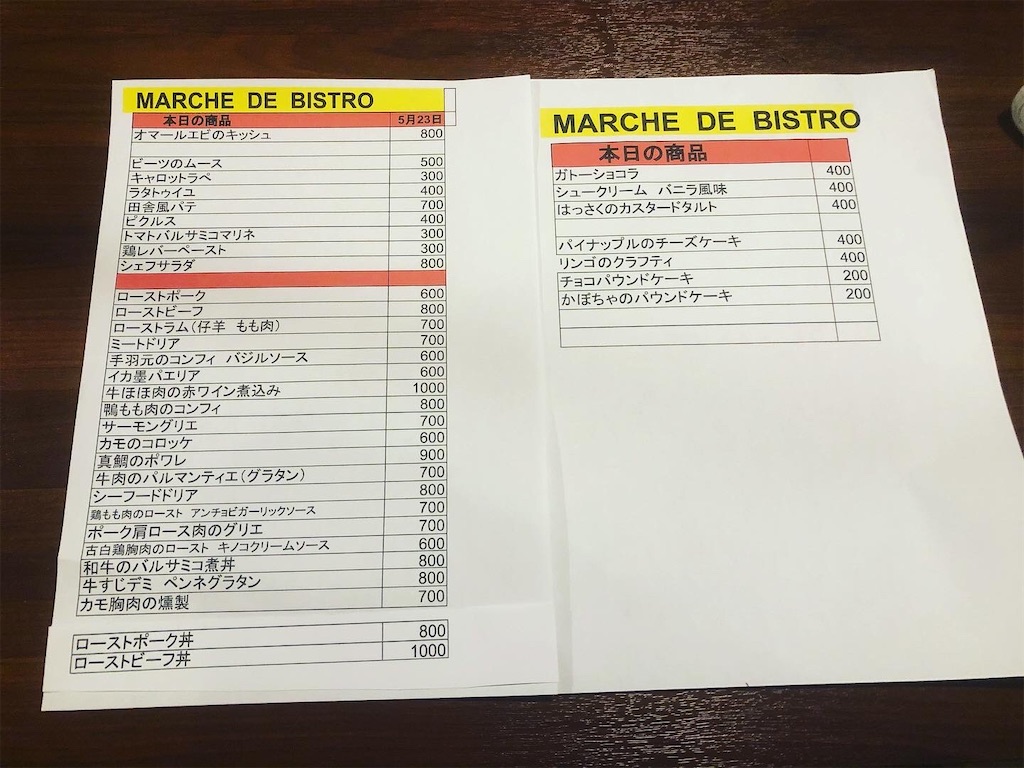 MARCHE DE BISTRO
本日の商品 5月23日
オマールエビのキッシュ 800
ビーツのムース 500
キャロットラペ 300
ラタトゥイユ 400
田舎風パテ 700
ピクルス 400
トマトバルサミコマリネ 300
鶏レバーペースト 300
シェフサラダ 800
ローストポーク 600
ローストビーフ 800
ローストラム(仔羊 もも肉) 700
ミートドリア 700
手羽元のコンフィ バジルソース 600
イカ墨パエリア 600
牛ほほ肉の赤ワイン煮込み 1000
鴨もも肉のコンフィ 800
サーモングリエ 700
カモのコロッケ 600
真鯛のポワレ 900
牛肉のパルマンティエ(グラタン) 700
シーフードドリア 800
鶏もも肉のロースト アンチョビガーリックソース 700
ポーク肩ロース肉のグリエ 700
古白鶏胸肉のロースト キノコクリームソース 600
和牛のバルサミコ煮丼 800
牛すじデミ ペンネグラタン 800
カモ胸肉の燻製 700
ローストポーク丼 800
ローストビーフ丼 1000
MARCHE DE BISTRO
本日の商品
ガトーショコラ 400
シュークリーム バニラ風味 400
はっさくのカスタードタルト 400
パイナップルのチーズケーキ 400
リンゴのクラフティ 400
チョコパウンドケーキ 200
かぼちゃのパウンドケーキ 200